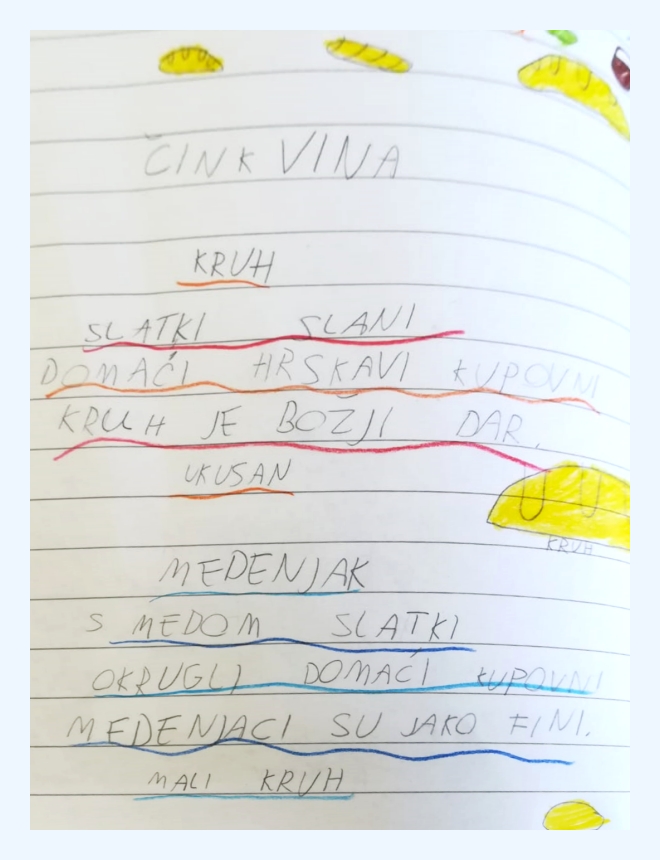 ČINKVINA
KRUH
SLATKI SLANI
DOMAĆI HRSKAVI KUPOVNI
KRUH JE BOŽJI DAR.
UKUSAN
KRUH
MEDENJAK
S MEDOM SLATKI
OKRUGLI DOMAĆI KUPOVNI
MEDENJACI SU JAKO FINI.
MALI KRUH